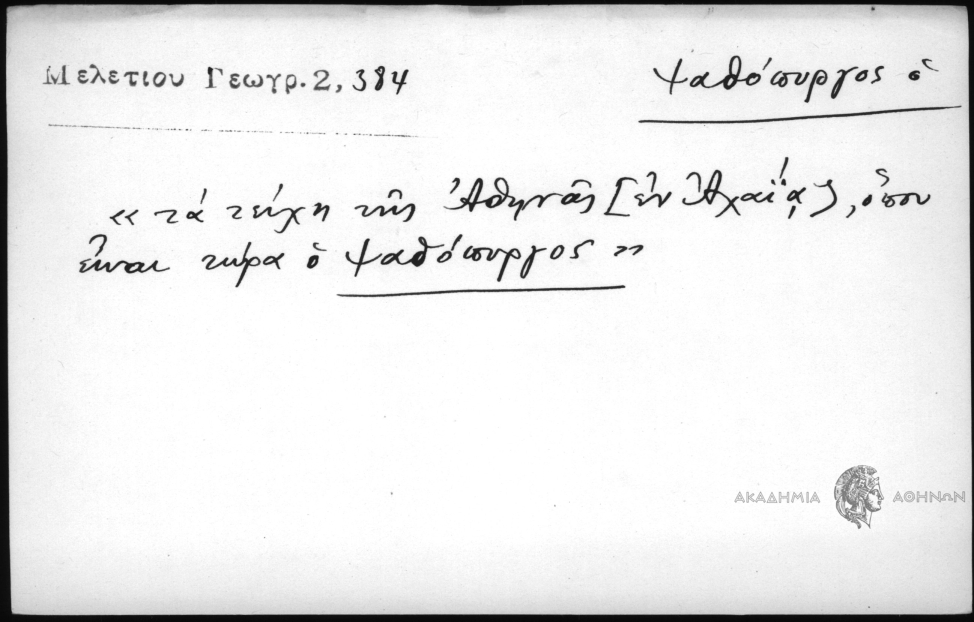 Μελετιου Γεωγρ. 2, 384
Ψαθόπυργος ὁ
« τὰ τείχη τῆς Ἀθηνᾶς [ἐν Ἀχαΐᾳ], ὅπου
εἶναι τώρα ὁ Ψαθόπυργος »
ΑΚΑΔΗΜΙΑ ΑΘΗΝΩΝ